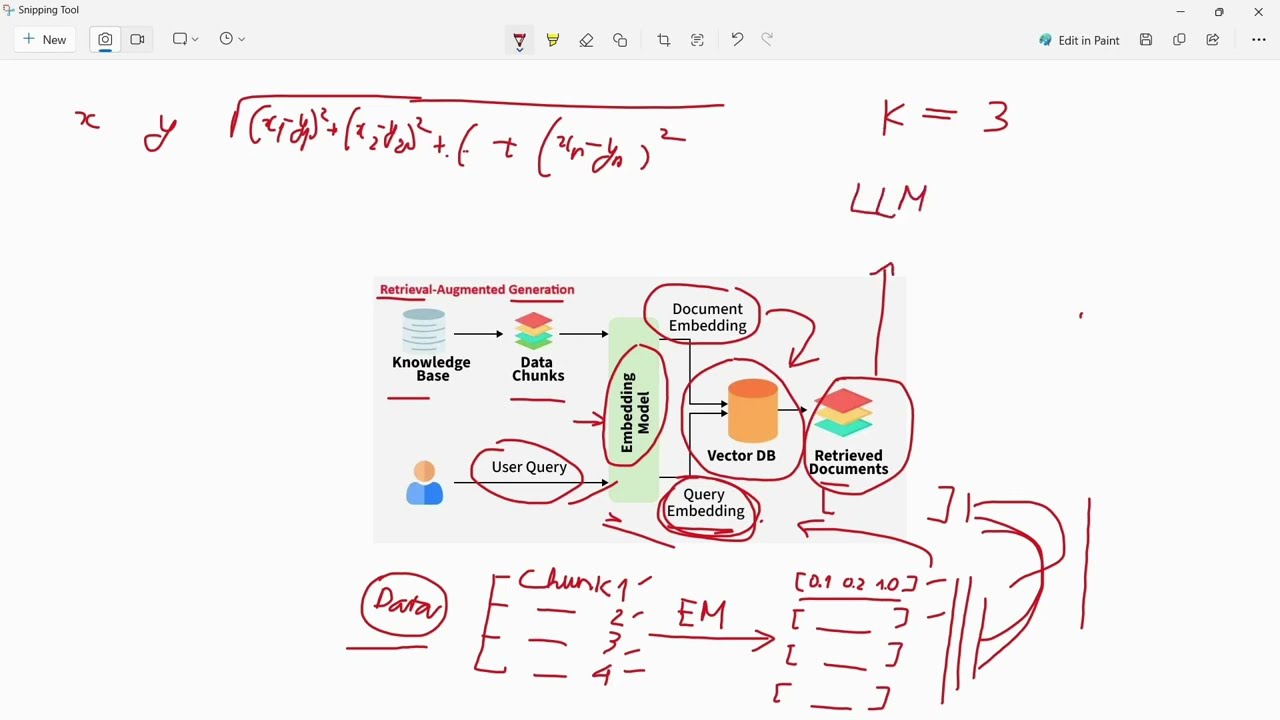 Snipping Tool
New
Edit in Paint
x y √(x₁-y₁)²+(x₂-y₂)²+.(.. + (xₙ-yₙ)²
K = 3
LLM
Retrieval-Augmented Generation
Document
Embedding
Knowledge
Base
Data
Chunks
Embedding
Model
Vector DB
Retrieved
Documents
User Query
Query
Embedding
[ ]
Data
Chunk 1
2
3
4
EM
[0.1 0.2 1.0]
[ __ ]
[ __ ]
[ __ ]